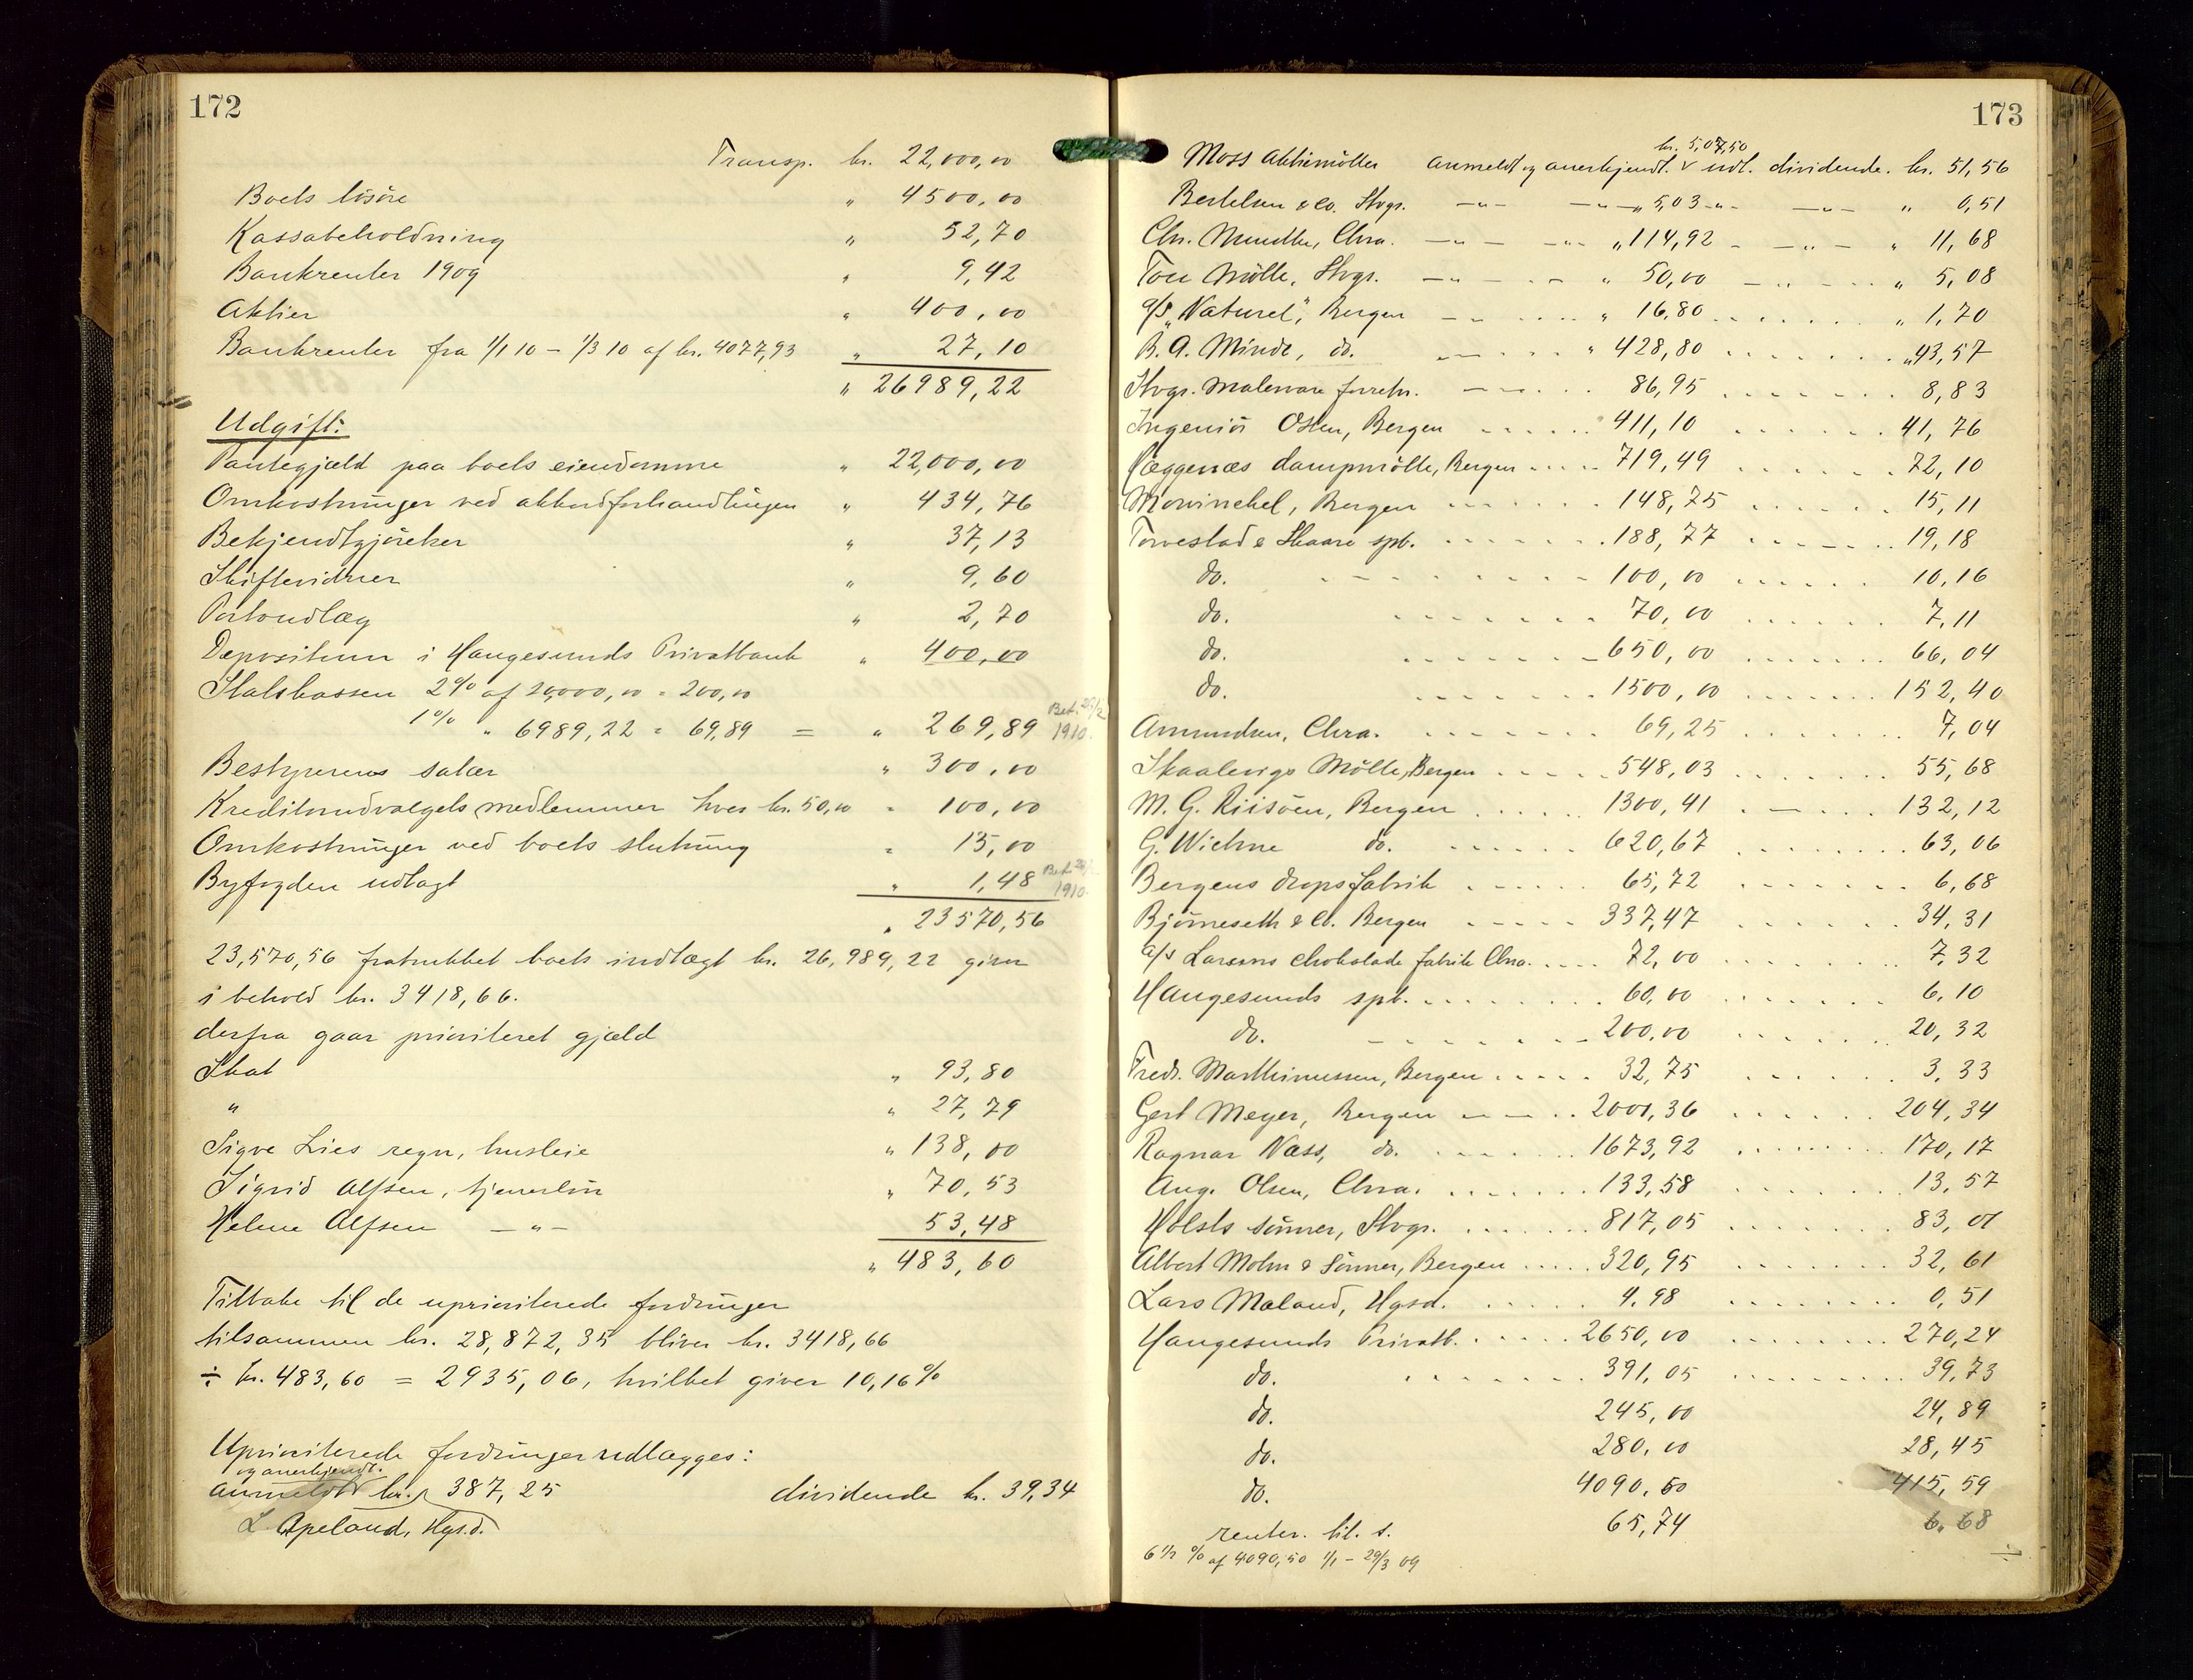 172
Transp. kr. 22,000,00
Boets løsøre " 4500,00
Kassabeholdning " 52,70
Bankrenter 1909 " 9,42
Aktier " 400,00
Bankrenter fra 1/1 10 - 1/3 10 af kr. 4077,93 " 27,10
" 26989,22
Udgift:
Pantegjæld paa boets eiendomme " 22,000,00
Omkostninger ved akkordforhandlingen " 434,76
Bekjendtgjørelser " 37,13
Skiftevidner " 9,60
Portoudlæg " 2,70
Depositum i Haugesunds Privatbank " 400,00
Statskassen 2% af 20,000,00 = 200,00
1% " 6989,22 = 69,89 = " 269,89 Bet. 1910.
Bestyrerens salær " 300,00
Kreditorudvalgets medlemmer hver kr. 50,00 " 100,00
Omkostninger ved boets slutning " 15,00
Byfogden udlagt " 1,48 Bet. 1910.
" 23570,56
23,570,56 fratrukket boets indtægt kr. 26,989,22 giver
i behold kr. 3418,66.
derfra gaar prioriteret gjæld
Skat " 93,80
" " 27,79
Sigve Lies regn, husleie " 138,00
Sigrid Alfsen, tjenerløn " 70,53
Helene Alfsen - " - 53,48
" 483,60
Tilbake til de uprioriterede fordringer
tilsammen kr. 28,872,35 bliver kr. 3418,66
÷ kr. 483,60 = 2935,06, hvilket giver 10,16%
Uprioriterede fordringer udlægges:
og anerkjendt.
anmeldt kr. 387,25 dividende kr. 39,34
L. Apeland, Hgsd.
173
kr. 5,07,50
Moss Aktiemøller anmeldt og anerkjendt. v udl. dividende. kr. 51,56
Bertelsen & Co. Stvgr. -"- -"- " 5,03 -"- -"- " 0,51
Chr. Mundte, Chra. -"- -"- " 114,92 - -"- " 11,68
Tou Mølle, Stvgr. -"- - " 50,00 -"- " 5,08
A/S "Naturel", Bergen " 16,80 " 1,70
B. A. Minde, do. " 428,80 " 43,57
Stvgr. Malervare forretn. 86,95 8,83
Ingeniør Olsen, Bergen 411,10 41,76
Vaggenæs dampmølle, Bergen 719,49 72,10
Mowinckel, Bergen 148,75 15,11
Torvestad & Skaare spb. 188,77 19,18
do. 100,00 10,16
do. 70,00 7,11
do. 650,00 66,04
do. 1500,00 152,40
Amundsen, Chra. 69,25 7,04
Skaalevigs Mølle, Bergen 548,03 55,68
M. G. Riisøen, Bergen 1300,41 132,12
G. Wiehne do. 620,67 63,06
Bergens dropsfabrik 65,72 6,68
Bjørneseth & Co. Bergen 337,47 34,31
A/S Larsens chokolade fabrik Chra. 72,00 7,32
Haugesunds spb. 60,00 6,10
do. 200,00 20,32
Fredr. Marthinussen, Bergen 32,75 3,33
Gert Meyer, Bergen 2001,36 204,34
Ragnar Næss, do. 1673,92 170,17
Aug. Olsen, Chra. 133,58 13,57
Holsts sønner, Stvgr. 817,05 83,01
Albert Mohn & Sønner, Bergen 320,95 32,61
Lars Maland, Hgsd. 4,98 0,51
Haugesunds Privatb. 2650,00 270,24
do. 391,05 39,73
do. 245,00 24,89
do. 280,00 28,45
do. 4090,50 415,59
renter. til. s. 65,74 6,68
6 1/2 % af 4090,50 1/1 - 29/3 09